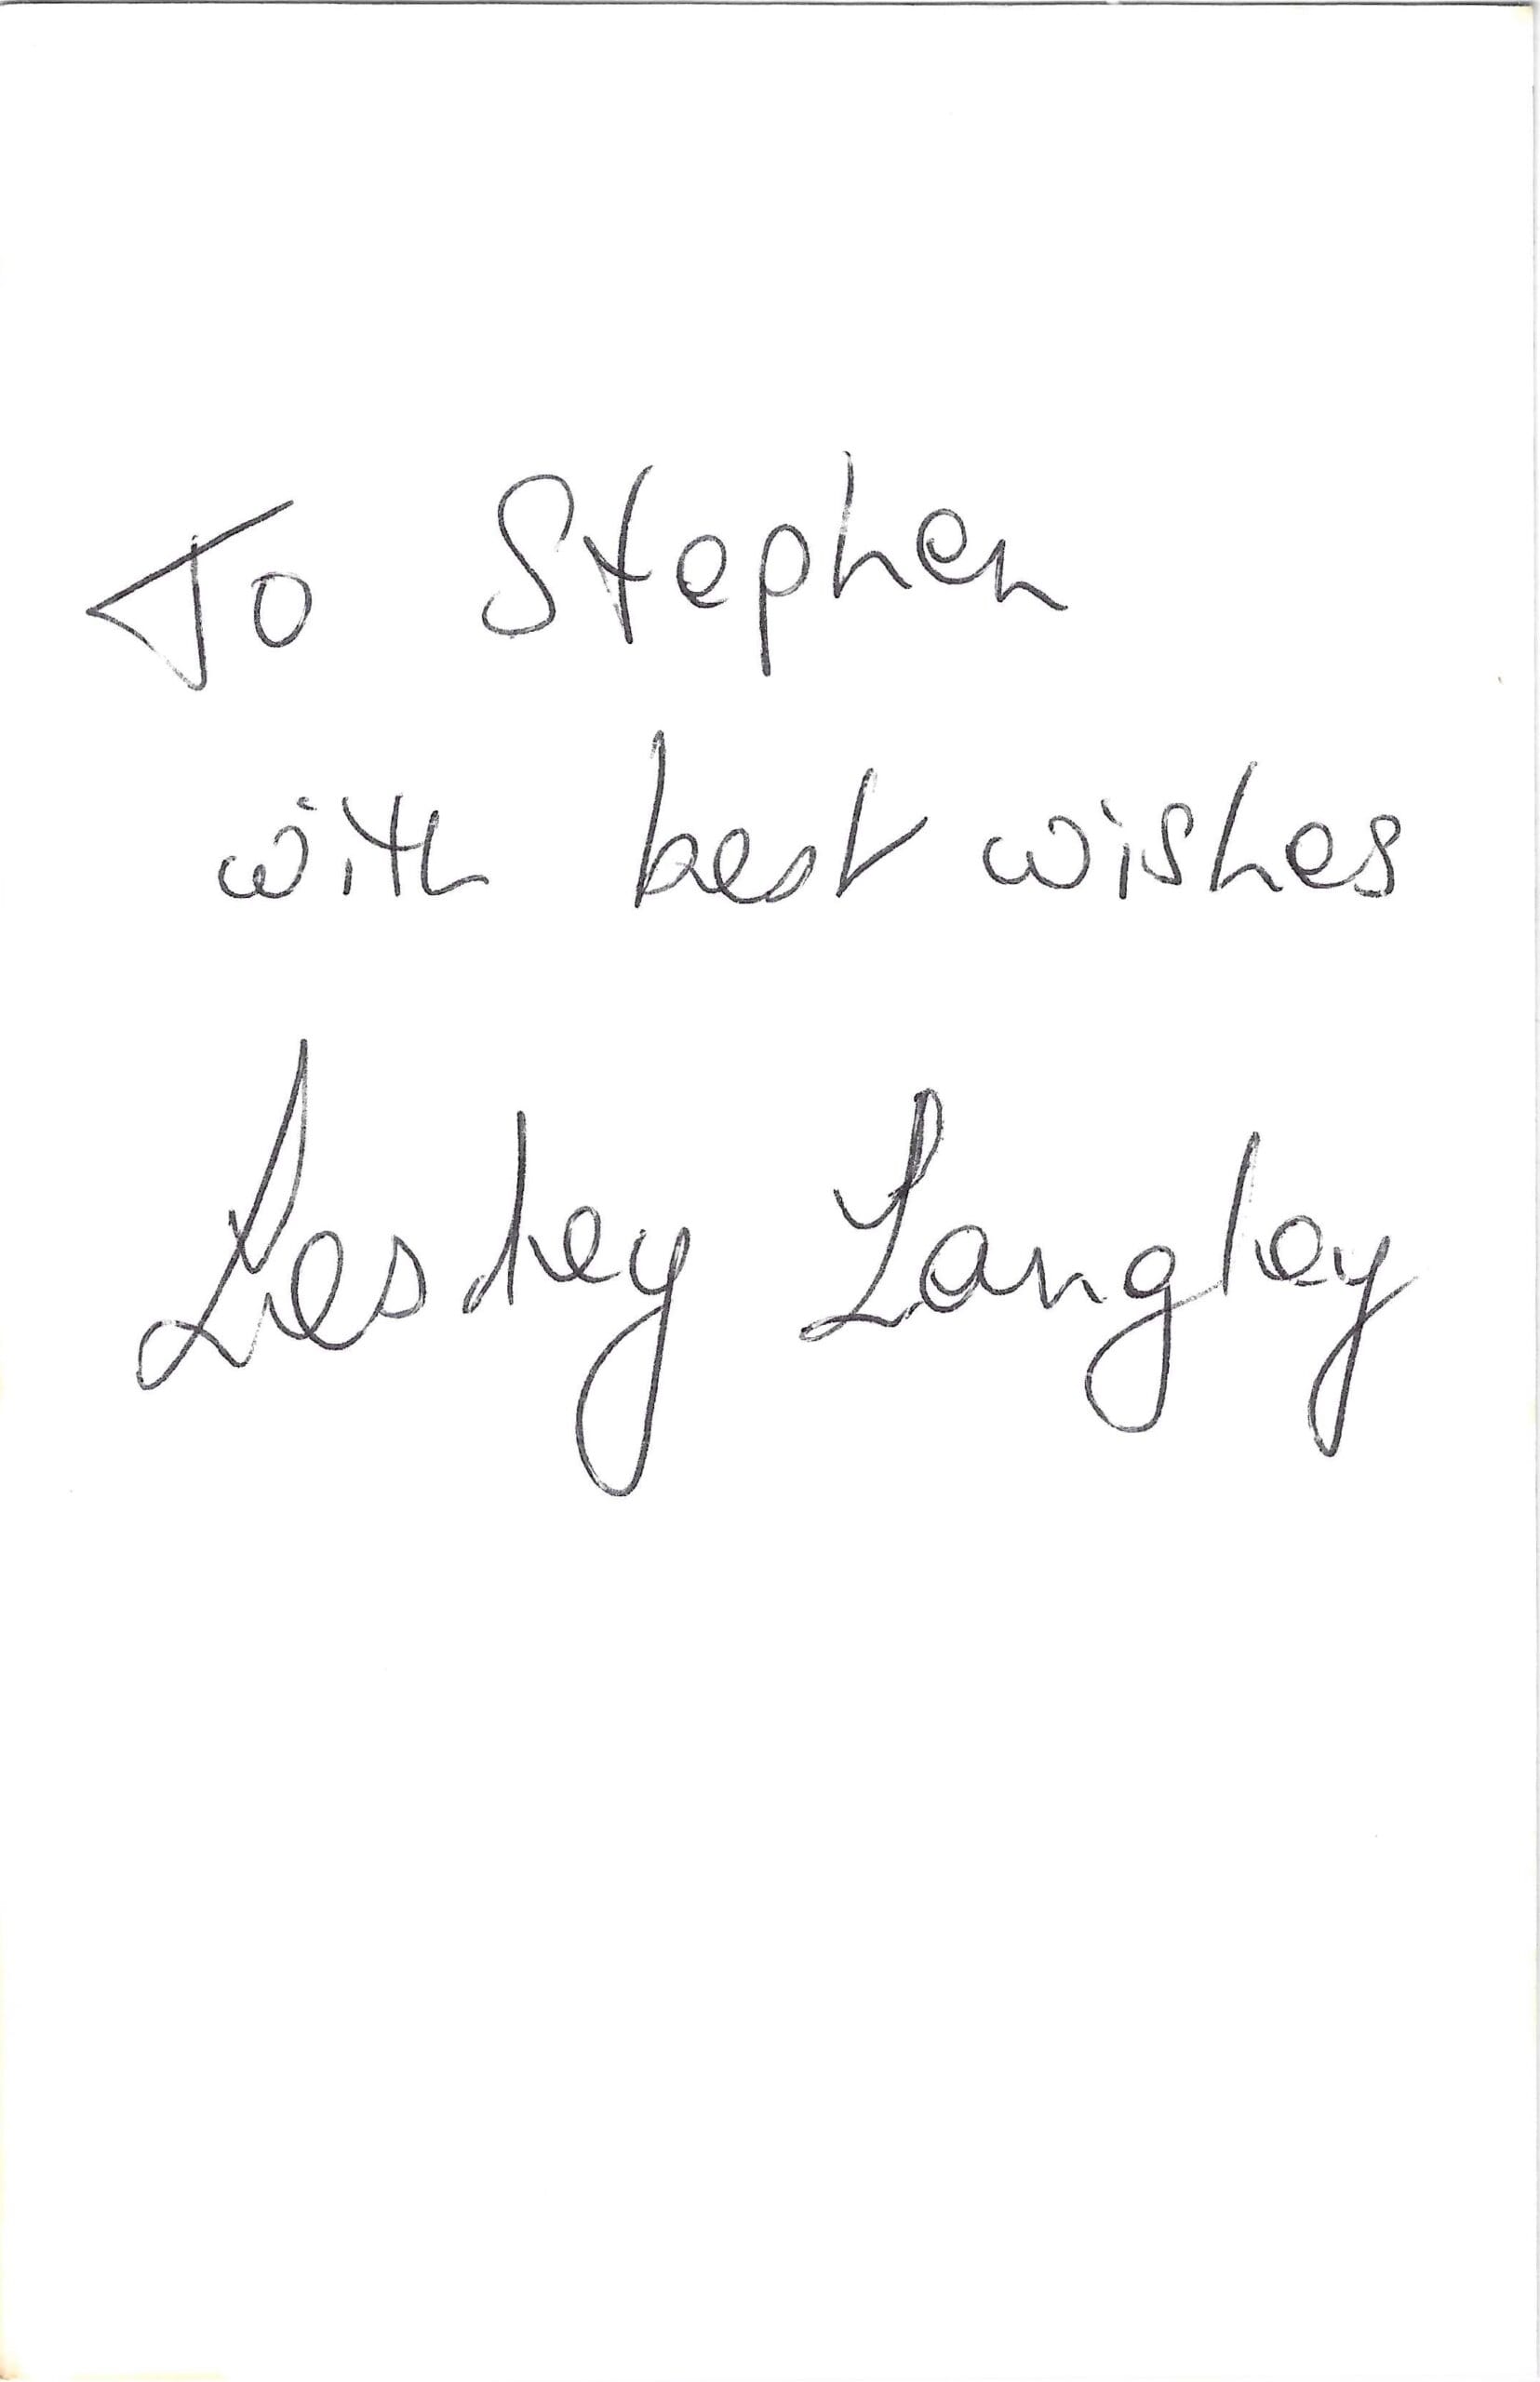 To Stephen
with best wishes
Lesley Langley